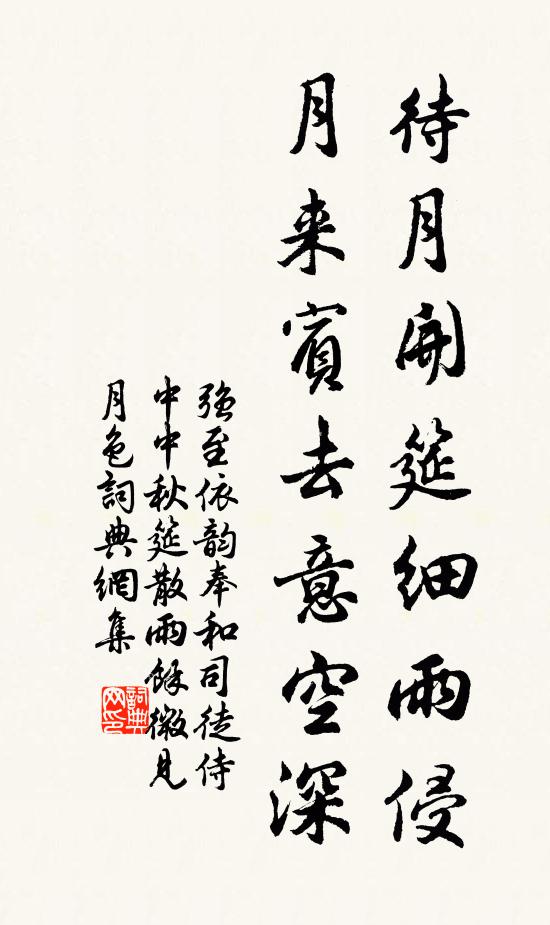 待月開筵細雨侵
月来賓去意空深
強至依韵奉和司徒侍
中中秋筵散雨餘微見
月色詞典網集
詞典網印